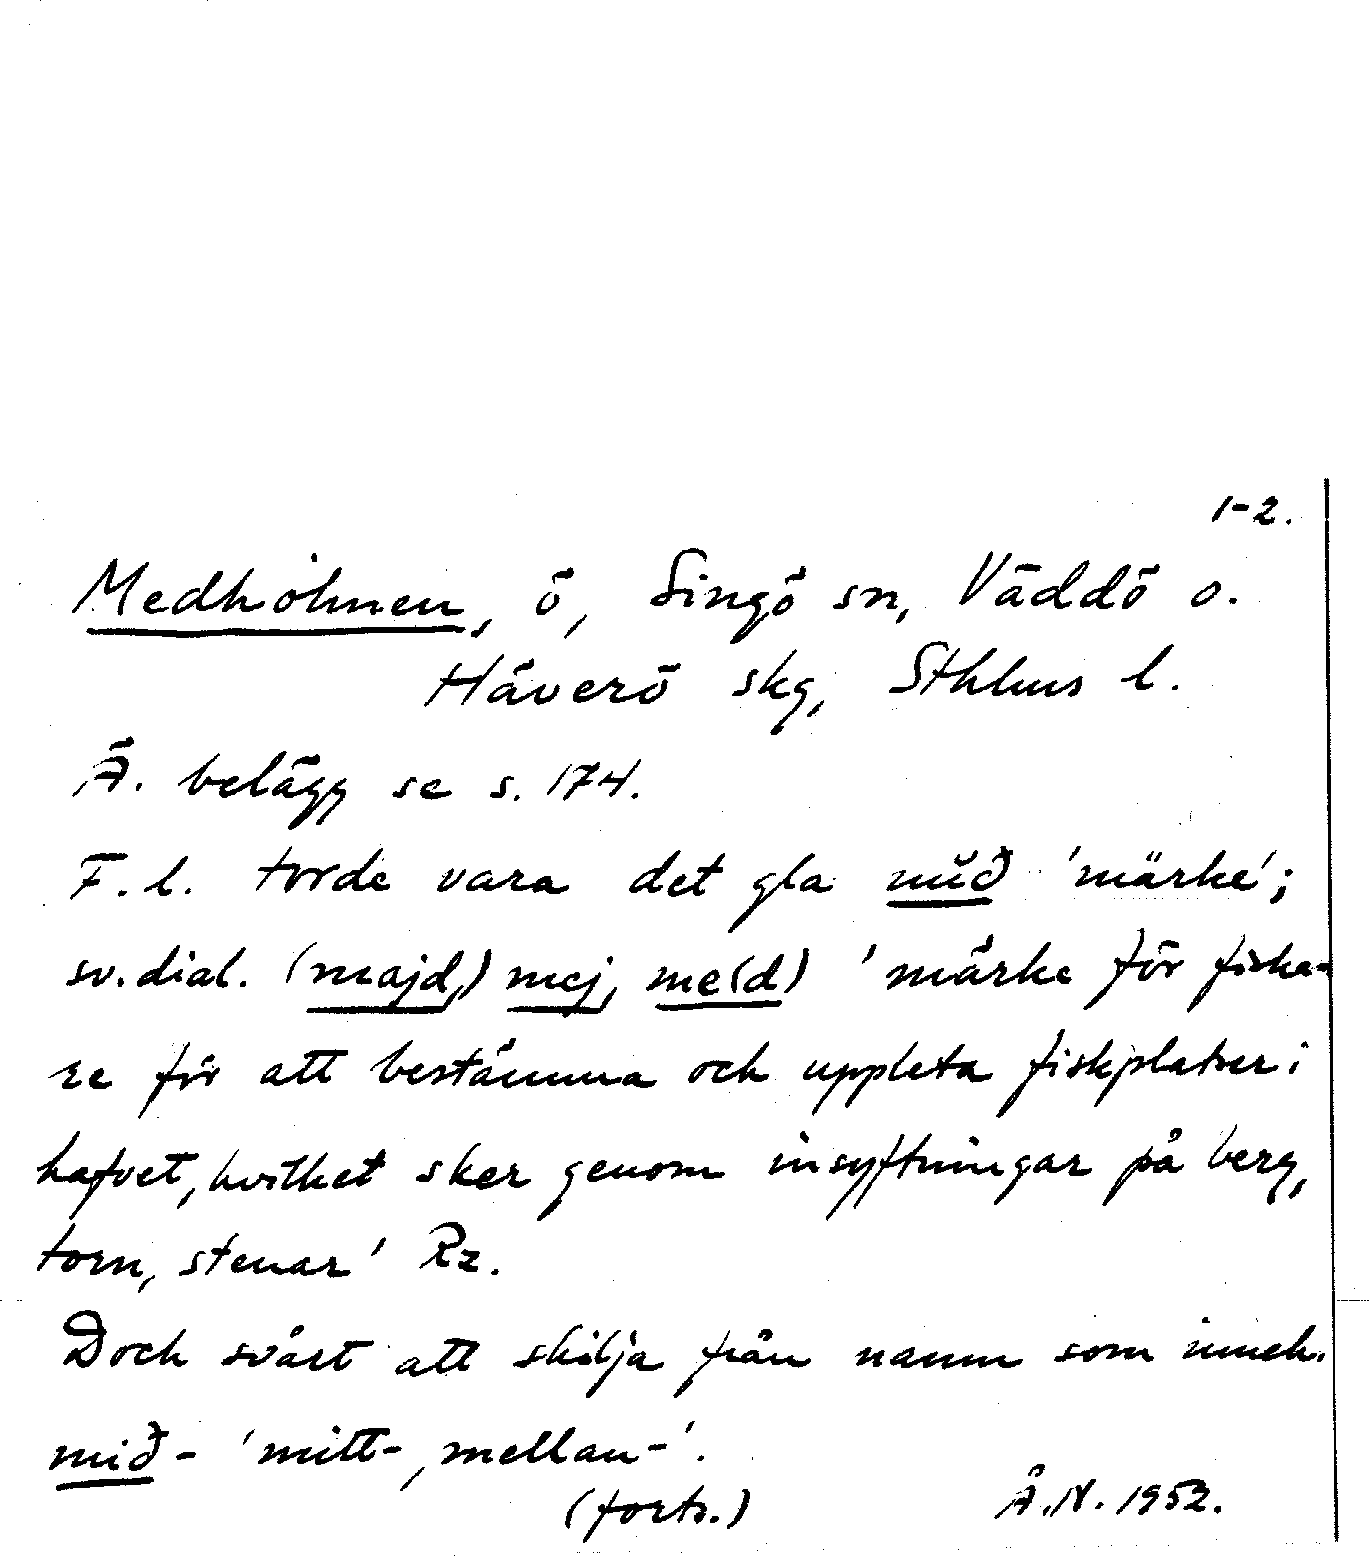 1-2.
Medholmen, ö, Singö sn, Väddö o.
Häverö skg, Sthlms l.
Ä. belägg se s. 174.
F.l. torde vara det gla mið 'märke';
sv.dial. (majd,) mej, me(d) 'märke för fiska-
re för att bestämma och uppleta fiskplatser i
hafvet, hvilket sker genom insyftningar på berg,
torn, stenar' Rz.
Doch svårt att skilja från namn som inneh.
mið- 'mitt-, mellan-'.
(forts.) Å.N. 1952.